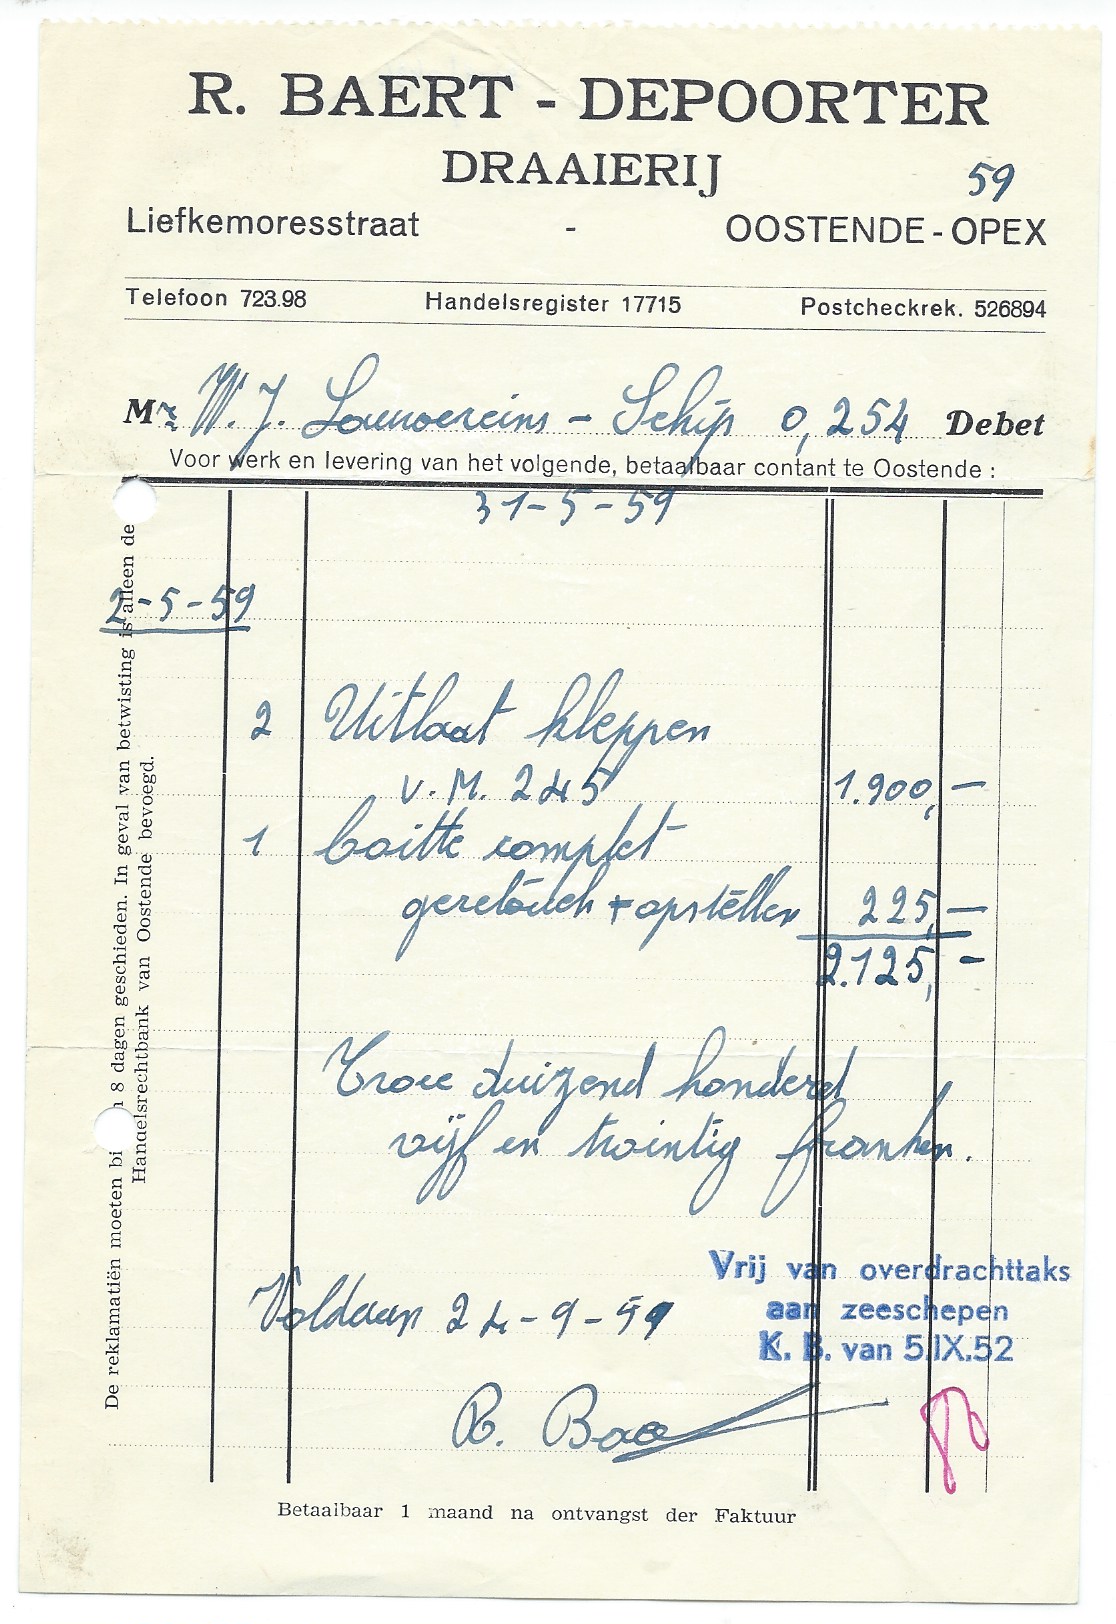 R. BAERT - DEPOORTER
DRAAIERIJ
59
Liefkemoresstraat - OOSTENDE - OPEX
Telefoon 723.98 Handelsregister 17715 Postcheckrek. 526894
Mr W. J. Louwereins - Schip 0,254 Debet
Voor werk en levering van het volgende, betaalbaar contant te Oostende :
31-5-59
2-5-59
2 Uitlaat kleppen
v. M. 245 1.900,—
1 complet
+ opstellen 225,—
2.125,-
Twee duizend honderd
vijf en twintig franken.
Vrij van overdrachttaks
aan zeeschepen
K. B. van 5.IX.52
Voldaan 24-9-59
R. Bae
Betaalbaar 1 maand na ontvangst der Faktuur
De reklamatiën moeten bi n 8 dagen geschieden. In geval van betwisting is alleen de
Handelsrechtbank van Oostende bevoegd.